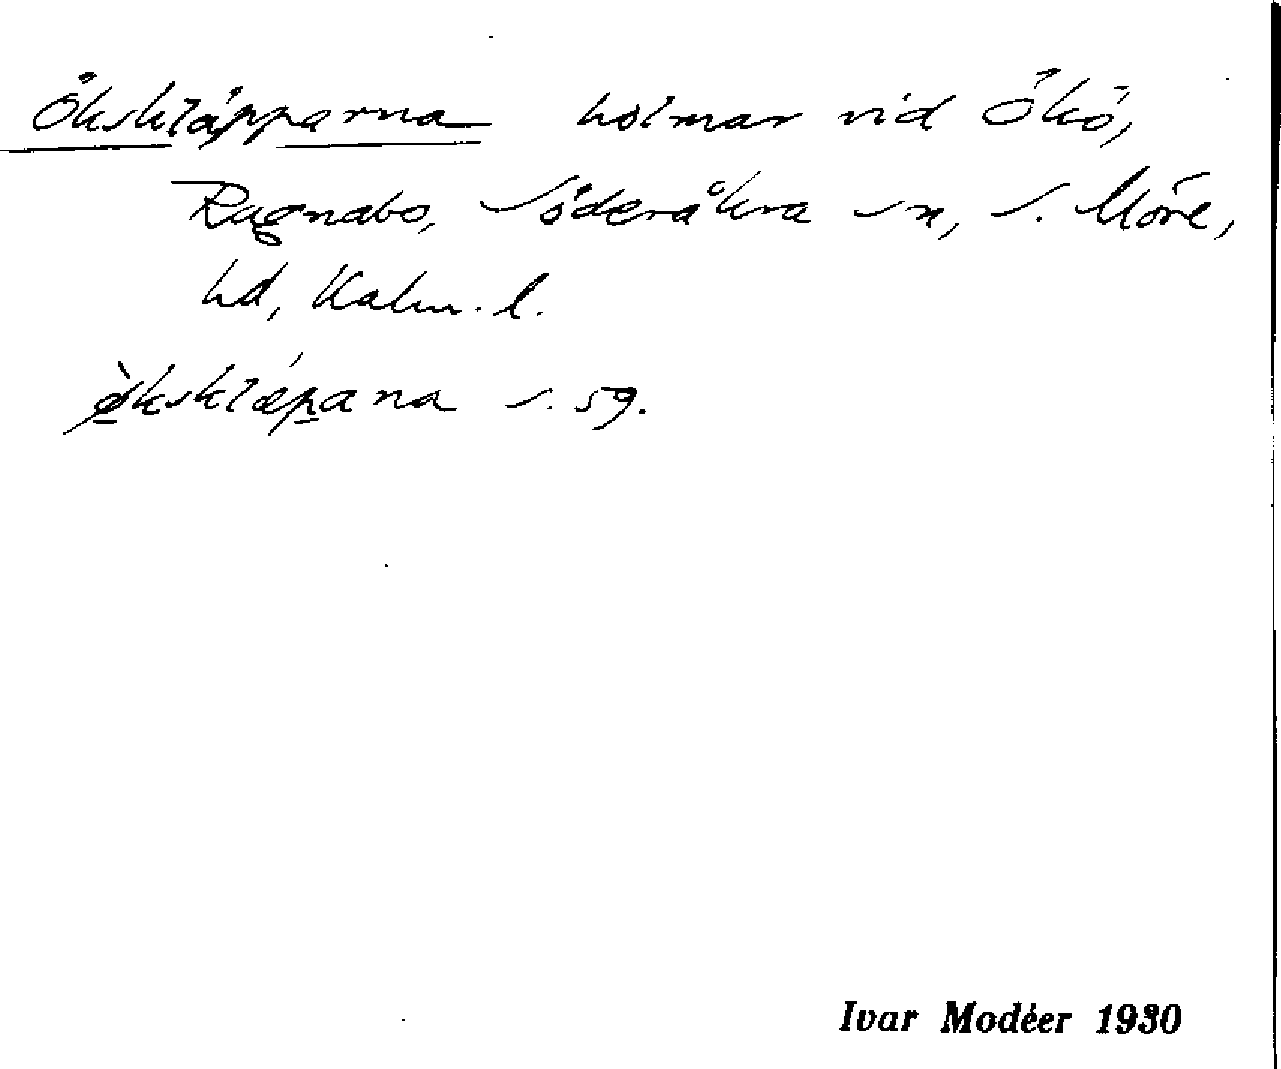 Ökskläpparna holmar vid Ökö,
Ragnabo, Söderåkra sn, S. Möre,
hd, Kalm. l.
ø̀ksklæpana s. 59.
Ivar Modéer 1930